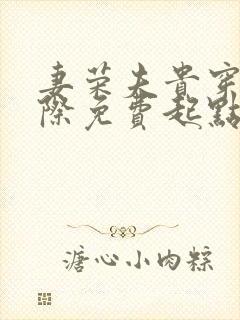 妻荣夫贵穿
际免费起點
溏心小肉粽